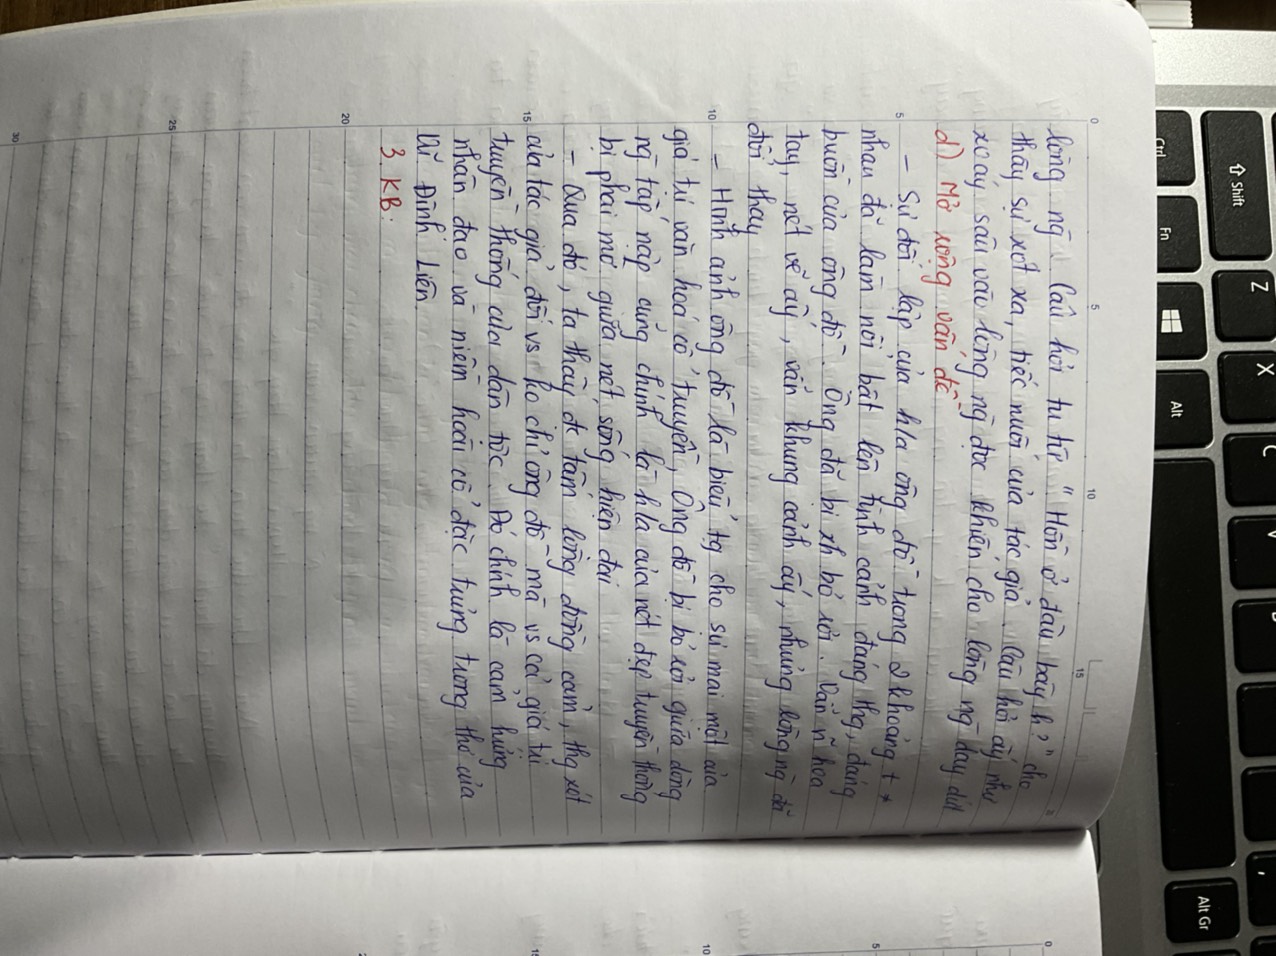 ⇧ Shift
Z
X
C
V
Alt Gr
Ctrl
Fn
Alt
0 5 10 15
lòng ng̅. Câu hỏi tu từ "Hồn ở đâu bây h?" cho
thấy sự xót xa, tiếc nuối của tác giả. Câu hỏi ấy như
xoáy sâu vào lòng ng̅ đọc khiến cho lòng ng̅ day dứt
d) Mở rộng vấn đề
- Sự đối lập của h/a ông đồ trong 2 khoảng t
5
nhau đã làm nổi bật lên tình cảnh đáng thg, đáng
buồn của ông đồ. Ông đã bị xh bỏ rơi. Vẫn n̅ hoa
tay, nét vẽ ấy, vẫn khung cảnh ấy, nhưng lòng ng̅ đã
đổi thay
- Hình ảnh ông đồ là biểu tg cho sự mai một của
10
giá trị văn hoá cổ truyền, Ông đồ bị bỏ rơi giữa dòng
ng̅ tấp nập cũng chính là h/a của nét đẹp truyền thống
bị phai mờ giữa nét sống hiện đại
- Qua đó, ta thấy đc tấm lòng đồng cảm, thg xót
15
của tác giả đối vs ko chỉ ông đồ mà vs cả giá trị
truyền thống của dân tộc. Đó chính là cảm hứng
nhân đạo và niềm hoài cổ đặc trưng trong thơ của
Vũ Đình Liên.
3. KB:
20
25
30
0
5
10